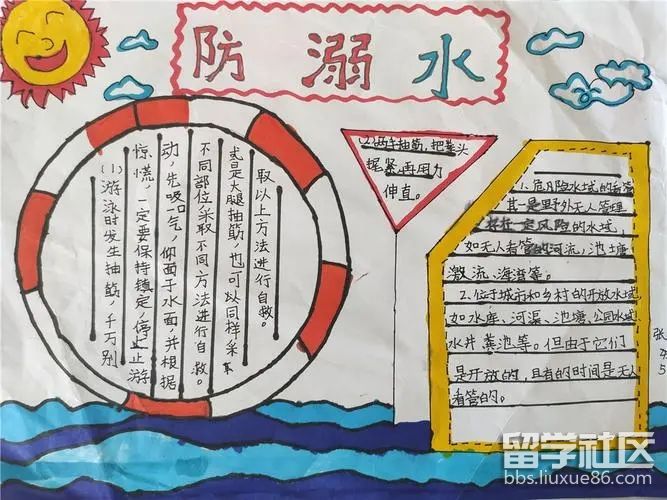 防溺水
(1)游泳时发生抽筋,千万别
惊慌,一定要保持镇定,停止游
动,先吸口气,仰面于水面,并根据
不同部位采取不同方法进行自救。
或是大腿抽筋,也可以同样采
取以上方法进行自救。
(2)两手抽筋,把拳头
握紧再用力
伸直。
1.危险水域的看管
其一是野外无人管理
一定风险的水域,
如无人看管的河流,池塘
激流、海滩等。
2.位于城市和乡村的开放水域
如水库、河渠、池塘、公园水域
水井粪池等。但由于它们
是开放的,且有的时间是无人
看管的。
张
留学社区
bbs.liuxue86.com